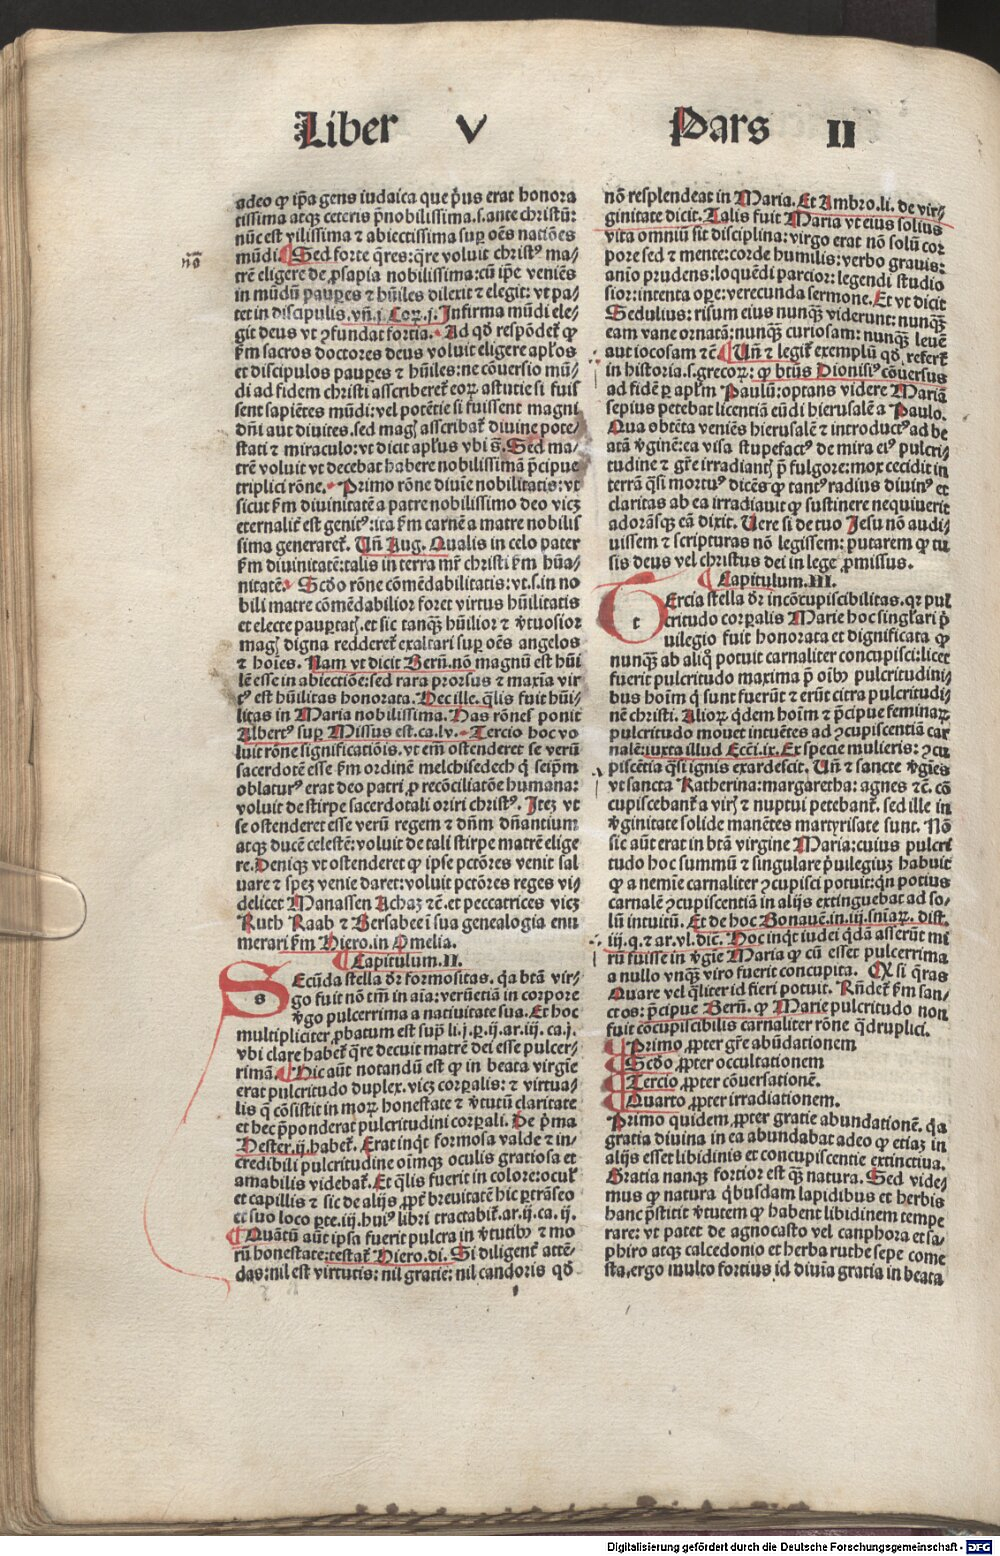 Liber V Pars II
adeo ꝙ ip̄a gens iudaica que p̄us erat honora
tissima atqꝫ ceteris p̄nobilissima.s.ante christū:
nūc est vilissima ⁊ abiectissima suꝑ oēs natiōes
mūdi. ¶ Sed forte q̄res:q̄re voluit christꝰ ma⸗
nō
trē eligere de ꝓsapia nobilissima:cū ip̄e veniēs
in mūdū pauꝑes ⁊ hūiles dilexit ⁊ elegit: vt pa⸗
tet in discipulis.vn̄.j.Coꝝ.j. Infirma mūdi ele⸗
git deus vt ꝯfundat fortia. Ad qd̄ respōdet̄ ꝙ
ẜm sacros doctores deus voluit eligere apl̄os
et discipulos pauꝑes ⁊ hūiles:ne cōuersio mū⸗
di ad fidem christi asscriberet̄ eoꝝ astutie si fuis
sent sapiētes mūdi:vel potētie si fuissent magni
dn̄i aut diuites.sed magꝭ asscribat̄ diuine pote⸗
stati ⁊ miraculo:vt dicit apl̄us vbi s̄. Sed ma⸗
trē voluit vt decebat habere nobilissimā p̄cipue
triplici rōne. Primo rōne diuīe nobilitatis:vt
sicut ẜm diuinitatē a patre nobilissimo deo vicꝫ
eternalit̄ est genitꝰ:ita ẜm carnē a matre nobilis
sima generaret̄. Vn̄ Aug. Qualis in celo pater
ẜm diuinitatē:talis in terra mr̄ christi ẜm hūa⸗
nitatē. Scd̄o rōne cōmēdabilitatis:vt.s.in no
bili matre cōmēdabilior foret virtus hūilitatis
et electe pauꝑtatꝭ.et sic tanqꝫ hūilior ⁊ v̄tuosior
magꝭ digna redderet̄ exaltari suꝑ oēs angelos
⁊ hoīes. Nam vt dicit Bern̄.nō magnū est hūi
lē esse in abiectiōe:sed rara prorsus ⁊ maxīa vir
tꝰ est hūilitas honorata. Hec ille.q̄lis fuit hūi⸗
litas in Maria nobilissima. Has rōnes ponit
Albertꝰ suꝑ Missus est.ca.lv. Tercio hoc vo
luit rōne significatiōis.vt em̄ ostenderet se verū
sacerdotē esse ẜm ordinē melchisedech q̇ seip̄m
oblaturꝰ erat deo patri ꝓ recōciliatōe humana:
voluit de stirpe sacerdotali oriri christꝰ. Iteꝫ vt
se ostenderet esse verū regem ⁊ dn̄m dn̄antium
atqꝫ ducē celestē:voluit de tali stirpe matrē elige
re. Deniqꝫ vt ostenderet ꝙ ipse pctōres venit sal
uare ⁊ speꝫ venie daret:voluit pctōres reges vi⸗
delicet Manassen Achaz ⁊c̄.et peccatrices vicꝫ
Ruth Raab ⁊ Bersabee ī sua genealogia enu
merari ẜm Hiero.in Omelia.
¶ Capitulum.II.
Ecūda stella dr̄ formositas.qa btā vir⸗
s
go fuit nō tm̄ in aīa:verūetiā in corpore
v̄go pulcerrima a natiuitate sua. Et hoc
multipliciter ꝓbatum est sup̄ li.j.ꝑ.ij.ar.iij.ca.j.
vbi clare habet̄ q̄re decuit matrē dei esse pulcer⸗
rimā. ¶ Hic aūt notandū est ꝙ in beata virgīe
erat pulcritudo duplex.vicꝫ corꝑalis: ⁊ virtua⸗
lis q̄ cōsistit in moꝝ honestate ⁊ v̄tutū claritate
et hec p̄ponderat pulcritudini corꝑali. De p̄ma
Hester.ij.habet̄. Erat inq̇t formosa valde ⁊ in⸗
credibili pulcritudine oīmqꝫ oculis gratiosa et
amabilis videbat̄. Et q̄lis fuerit in colore:ocul̄
et capillis ⁊ sic de alijs ꝓpt̄ breuitatē hic ꝑtrāseo
et suo loco ꝑte.iij.huiꝰ libri tractabit̄.ar.ij.ca.ij.
¶ Quātū aūt ipsa fuerit pulcra in v̄tutibꝰ ⁊ mo
rū honestate:testat̄ Hiero.di. Si diligent̄ attē⸗
das:nil est virtutis: nil gratie: nil candoris qd̄
nō resplendeat in Maria. Et Ambro.li.de vir⸗
ginitate dicit. Talis fuit Maria vt eius solius
vita omniū sit disciplina: virgo erat nō solū cor
pore sed ⁊ mente: corde humilis: verbo grauis:
anīo prudens: loquēdi parcior: legendi studio
sior:intenta oꝑe:verecunda sermone. Et vt dicit
Sedulius: risum eius nunqꝫ viderunt: nunqꝫ
eam vane ornatā:nunqꝫ curiosam: nunqꝫ leuē
aut iocosam ⁊c̄. ¶ Vn̄ ⁊ legit̄ exemplū qd̄ refert̄
in historia.s.grecoꝝ: ꝙ btūs Dionisiꝰ cōuersus
ad fidē ꝑ apl̄m Paulū:optans videre Mariā
sepius petebat licentiā eūdi hierusalē a Paulo.
Qua obtēta veniēs hierusalē ⁊ introductꝰ ad be
atā v̄ginē:ea visa stupefactꝰ de mira eiꝰ pulcri⸗
tudine ⁊ gr̄e irradiantꝭ p̄ fulgore:mox cecidit in
terrā q̄si mortuꝰ dicēs ꝙ tantꝰ radius diuinꝰ et
claritas ab ea irradiauit ꝙ sustinere nequiuerit
adorāsqꝫ eā dixit. Uere si de tuo Jesu nō audi⸗
uissem ⁊ scripturas nō legissem: putarem ꝙ tu
sis deus vel christus dei in lege ꝓmissus.
¶ Capitulum.III.
Ercia stella dr̄ incōcupiscibilitas.qꝛ pul
t
critudo corꝑalis Marie hoc singlari p̄
uilegio fuit honorata et dignificata ꝙ
nunqꝫ ab aliq̇ potuit carnaliter concupisci:licet
fuerit pulcritudo maxima p̄ oībꝰ pulcritudini⸗
bus hoīm q̇ sunt fuerūt ⁊ erūt citra pulcritudi⸗
nē christi. Alioꝝ q̇dem hoīm ⁊ p̄cipue feminaꝝ
pulcritudo mouet intuētes ad ꝯcupiscentiā car
nalē:iuxta illud Ecci.ix. Ex specie mulieris: ꝯcu
piscētia q̄si ignis exardescit. Vn̄ ⁊ sancte v̄gīes
vt sancta Katherina:margaretha: agnes ⁊c̄. cō
cupiscebant̄ a virꝭ ⁊ nuptui petebant̄. sed ille in
v̄ginitate solide manētes martyrisate sunt. Nō
sic aūt erat in btā virgine Maria:cuius pulcri
tudo hoc summū ⁊ singulare p̄uilegiuꝫ habuit
ꝙ a nemīe carnaliter ꝯcupisci potuit:q̇n potius
carnalē ꝯcupiscentiā in alijs extinguebat ad so⸗
lū intuitū. Et de hoc Bonauē.in.iij.sniaꝝ.dist.
iij.q.⁊ ar.vl.dic̄. Hoc inq̇t iudei q̇dā asserūt mi
rū fuisse in v̄gīe Maria ꝙ cū esset pulcerrima
a nullo vnqꝫ viro fuerit concupita. Qꝛ si q̄ras
Quare vel q̄liter id fieri potuit. Rn̄det̄ ẜm san⸗
ctos: p̄cipue Bern̄. ꝙ Marie pulcritudo non
fuit cōcupiscibilis carnaliter rōne q̇druplici.
¶ Primo ꝓpter gr̄e abūdationem
¶ Scd̄o ꝓpter occultationem
¶ Tercio ꝓpter cōuersationē.
¶ Quarto ꝓpter irradiationem.
Primo quidem ꝓpter gratie abundationē.qa
gratia diuina in ea abundabat adeo ꝙ etiaꝫ in
alijs esset libidinis et concupiscentie extinctiua.
Gratia nanqꝫ fortior est qꝫ natura. Sed vide⸗
mus ꝙ natura q̇busdam lapidibus et herbis
hanc p̄stitit v̄tutem ꝙ habent libidinem tempe
rare: vt patet de agnocasto vel canphora et sa⸗
phiro atqꝫ calcedonio et herba ruthe sepe come
sta.ergo multo fortius id diuīa gratia in beata
Digitalisierung gefördert durch die Deutsche Forschungsgemeinschaft - DFG